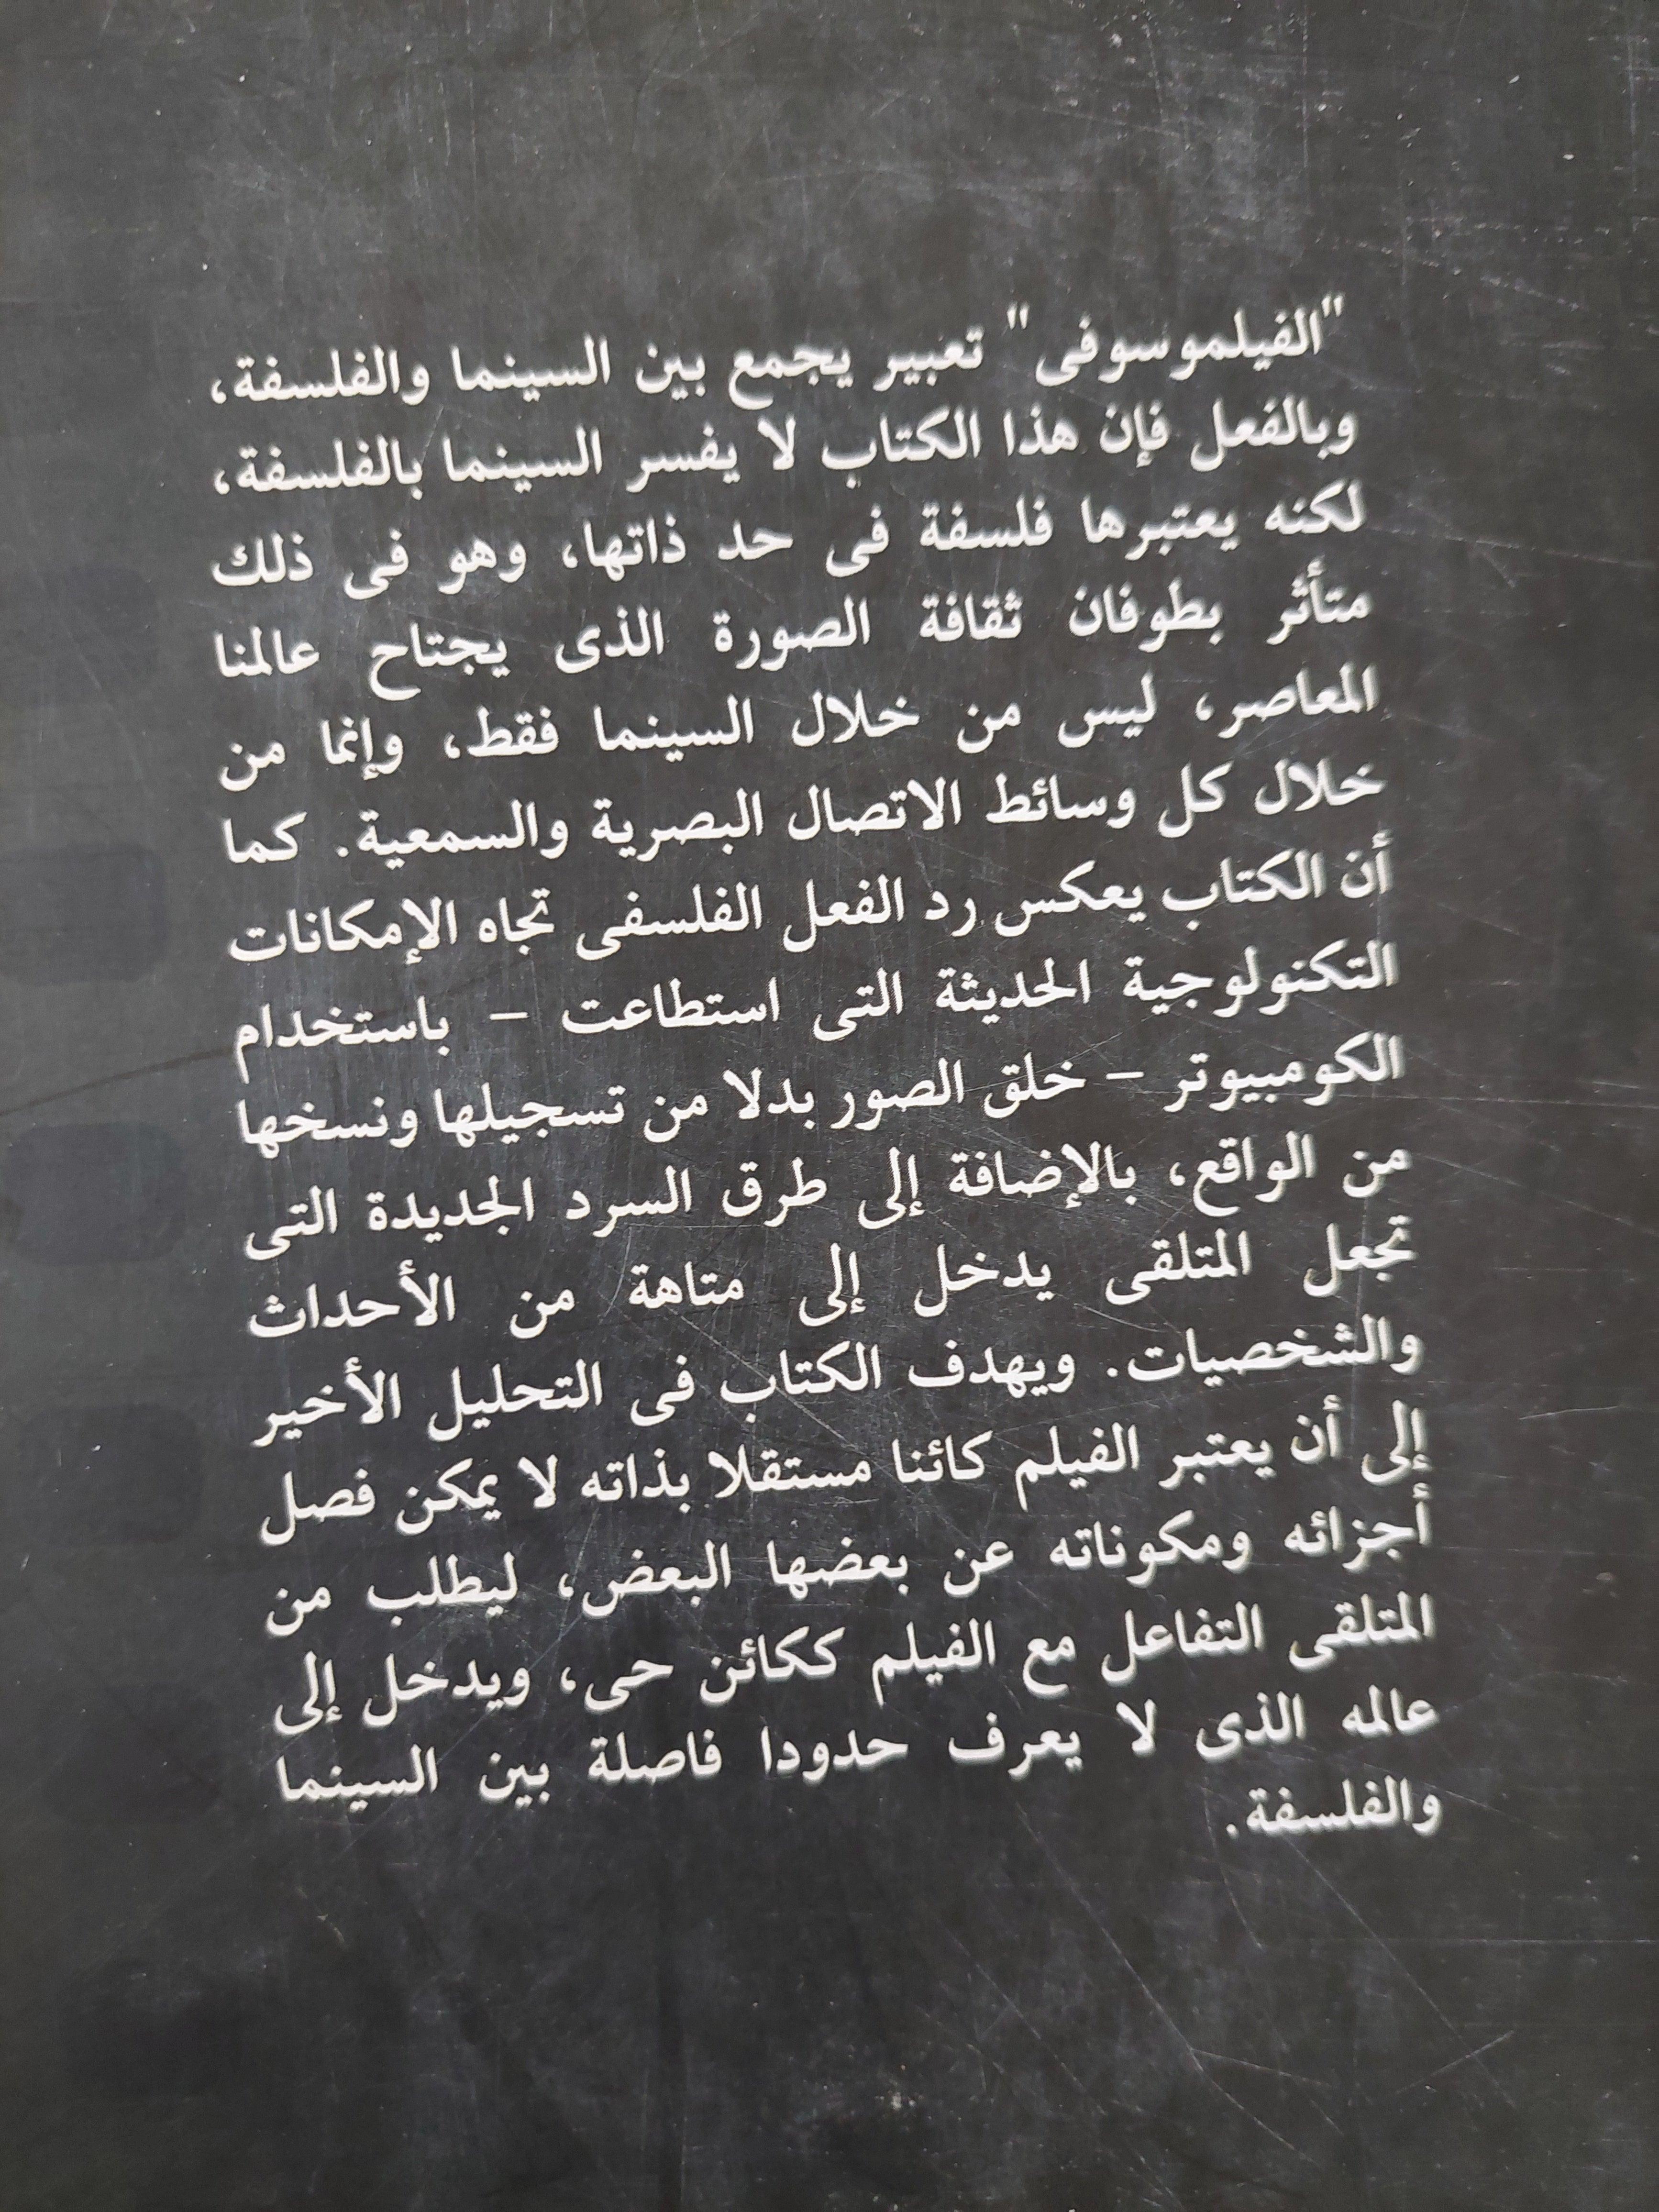 "الفيلموسوفى" تعبير يجمع بين السينما والفلسفة،
وبالفعل فإن هذا الكتاب لا يفسر السينما بالفلسفة،
لكنه يعتبرها فلسفة فى حد ذاتها، وهو فى ذلك
متأثر بطوفان ثقافة الصورة الذى يجتاح عالمنا
المعاصر، ليس من خلال السينما فقط، وإنما من
خلال كل وسائط الاتصال البصرية والسمعية. كما
أن الكتاب يعكس رد الفعل الفلسفى تجاه الإمكانات
التكنولوجية الحديثة التى استطاعت – باستخدام
الكومبيوتر – خلق الصور بدلا من تسجيلها ونسخها
من الواقع، بالإضافة إلى طرق السرد الجديدة التى
تجعل المتلقى يدخل إلى متاهة من الأحداث
والشخصيات. ويهدف الكتاب فى التحليل الأخير
إلى أن يعتبر الفيلم كائنا مستقلا بذاته لا يمكن فصل
أجزائه ومكوناته عن بعضها البعض، ليطلب من
المتلقى التفاعل مع الفيلم ككائن حى، ويدخل إلى
عالمه الذى لا يعرف حدودا فاصلة بين السينما
والفلسفة.